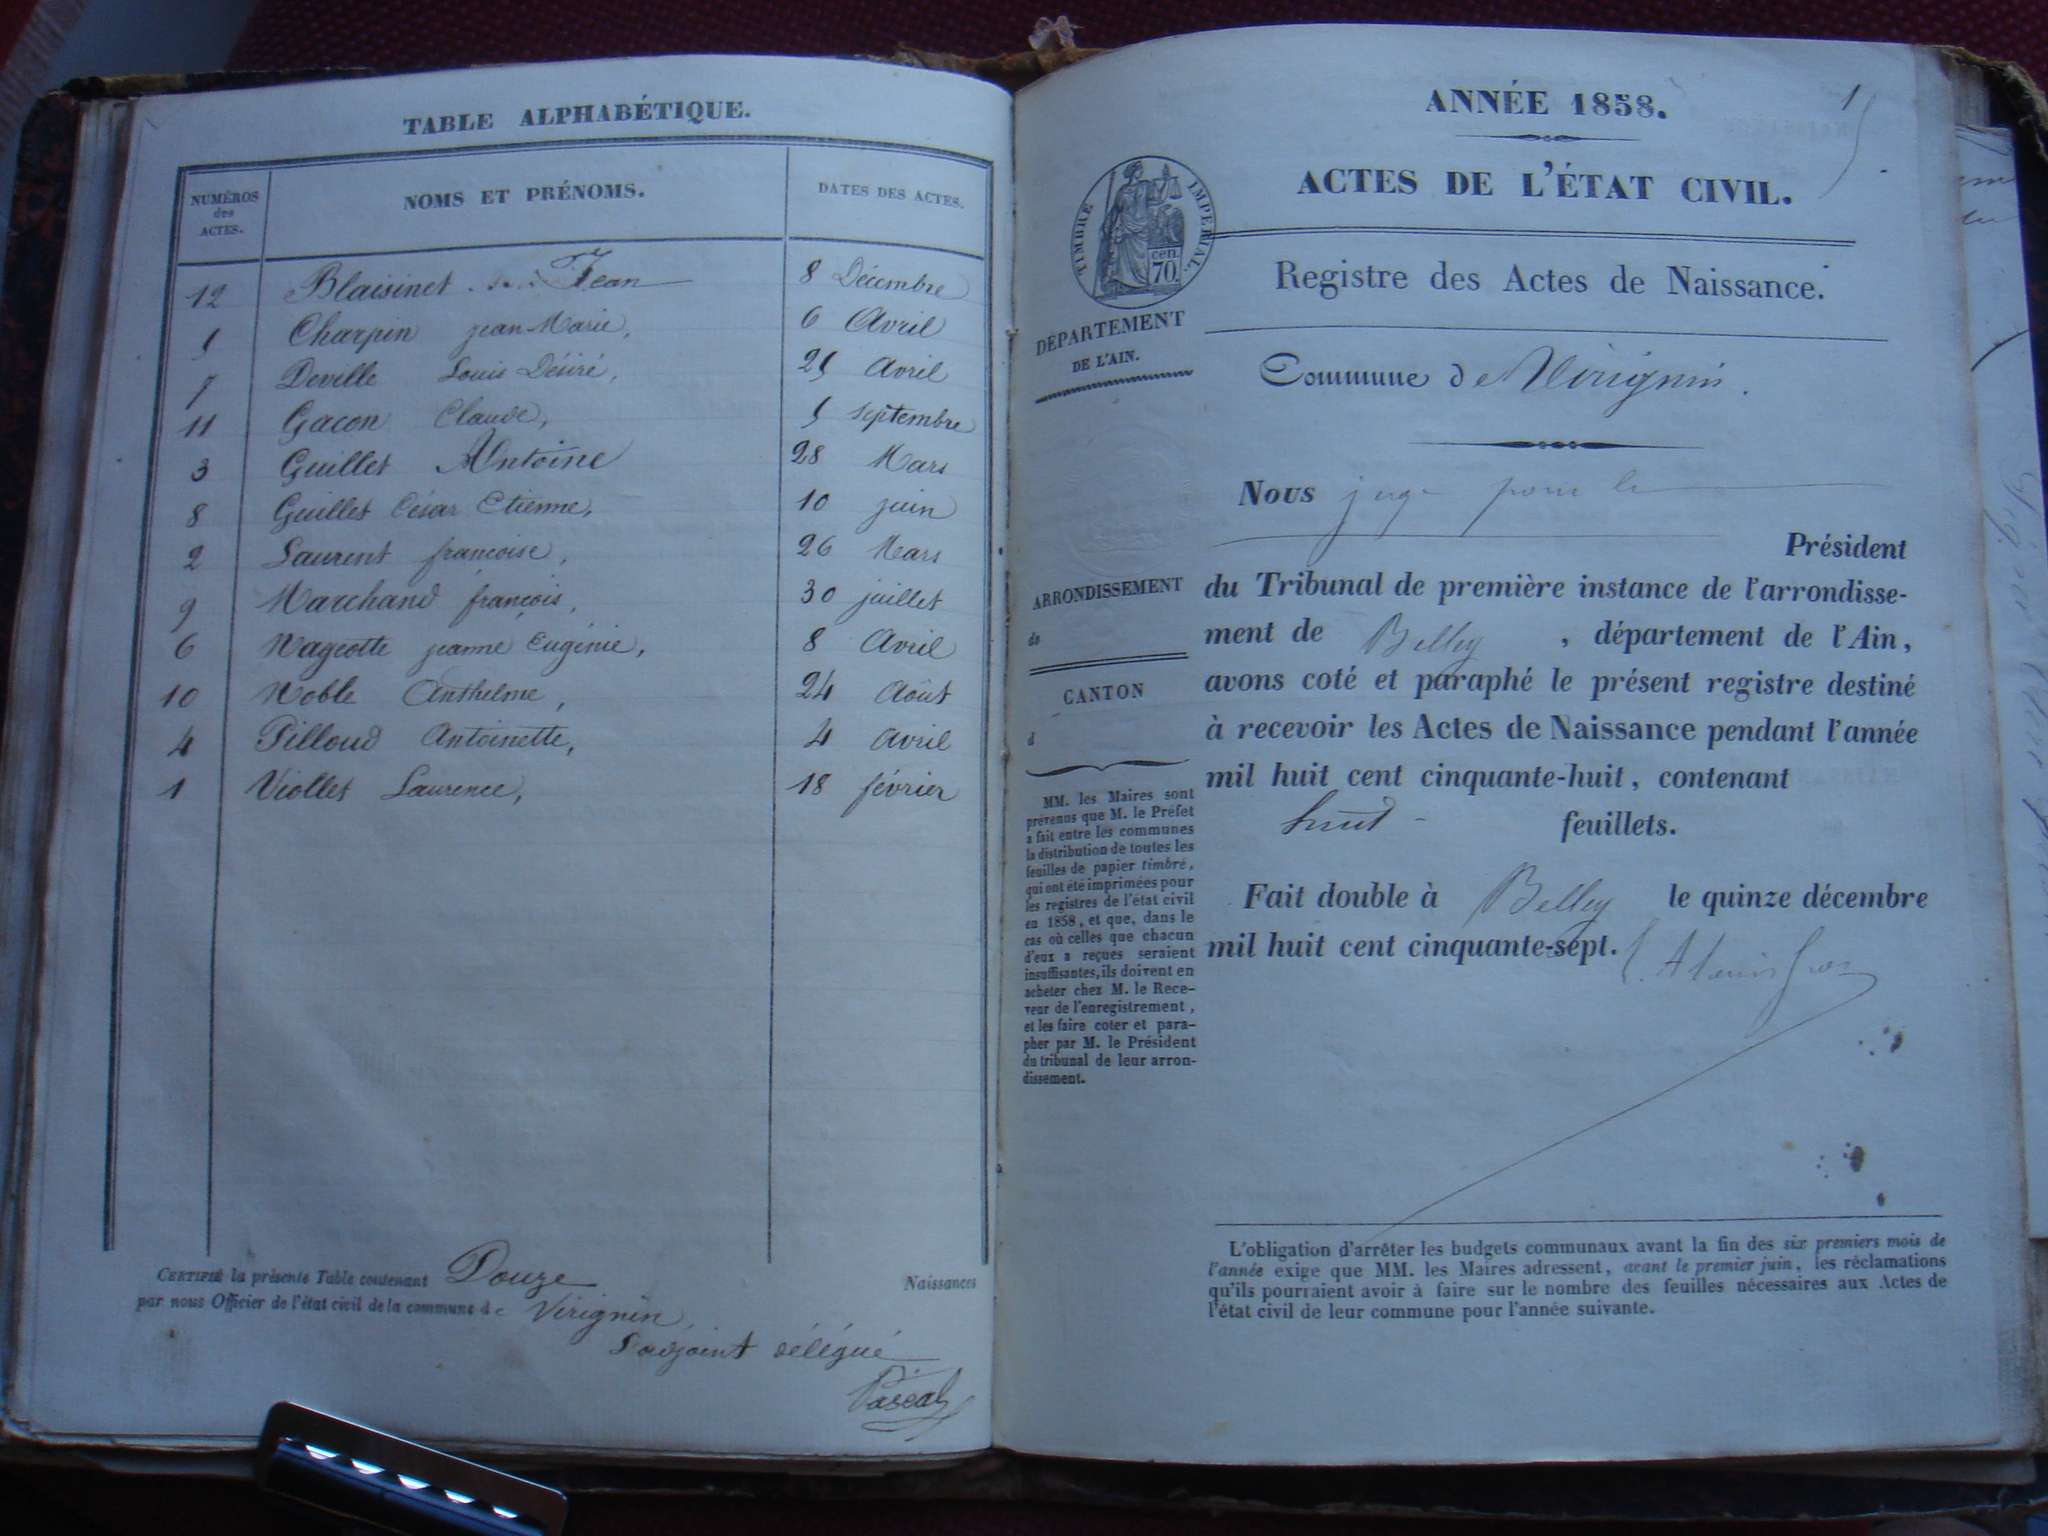 TABLE ALPHABÉTIQUE.
NUMÉROS des ACTES.
NOMS ET PRÉNOMS.
DATES DES ACTES.
12 Blaisinet Jean 8 Décembre
5 Charpin jean Marie, 6 Avril
7 Deville Louis Désiré, 25 Avril
11 Gacon Claude, 5 septembre
3 Guillet Antoine 28 Mars
8 Guillet César Etienne, 10 juin
2 Laurent francoise, 26 Mars
9 Marchand françois, 30 juillet
6 Nageotte jeanne Eugénie, 8 Avril
10 Noble Anthelme, 24 Août
4 Pilloud Antoinette, 4 Avril
1 Viollet Laurence, 18 février
CERTIFIÉ la présente Table contenant Douze Naissances
par nous Officier de l'état civil de la commune de Virignin,
L'adjoint délégué
Pascal
1
ANNÉE 1858.
ACTES DE L'ÉTAT CIVIL.
TIMBRE IMPÉRIAL.
cen. 70.
Registre des Actes de Naissance.
DÉPARTEMENT
DE L'AIN.
Commune de Virignin.
Nous juge pour le
Président
ARRONDISSEMENT
de
CANTON
d
du Tribunal de première instance de l'arrondisse-
ment de Belley, département de l'Ain,
avons coté et paraphé le présent registre destiné
à recevoir les Actes de Naissance pendant l'année
mil huit cent cinquante-huit, contenant
huit feuillets.
Fait double à Belley le quinze décembre
mil huit cent cinquante-sept.
MM. les Maires sont
prévenus que M. le Préfet
a fait entre les communes
la distribution de toutes les
feuilles de papier timbré,
qui ont été imprimées pour
les registres de l'état civil
en 1858, et que, dans le
cas où celles que chacun
d'eux a reçues seraient
insuffisantes, ils doivent en
acheter chez M. le Rece-
veur de l'enregistrement,
et les faire coter et para-
pher par M. le Président
du tribunal de leur arron-
dissement.
L'obligation d'arrêter les budgets communaux avant la fin des six premiers mois de
l'année exige que MM. les Maires adressent, avant le premier juin, les réclamations
qu'ils pourraient avoir à faire sur le nombre des feuilles nécessaires aux Actes de
l'état civil de leur commune pour l'année suivante.